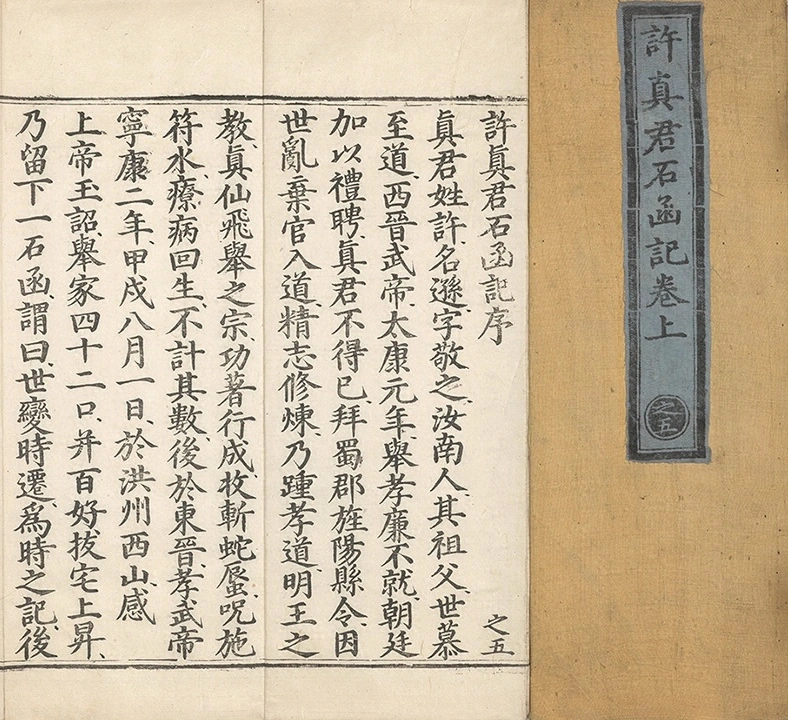 許真君石函記卷上
之五
許眞君石函記序
之五
眞君姓許、名遜、字敬之、汝南人、其祖父、世慕
至道、西晉武帝、太康元年、舉孝廉不就、朝廷
加以禮聘、眞君不得已、拜蜀郡旌陽縣令、因
世亂棄官入道、精志修煉、乃踵孝道、明王之
教、眞仙飛舉之宗、功著行成、收斬蛇蜃、呪施
符水、療病回生、不計其數、後於東晉、孝武帝
寧康二年、甲戌八月一日、於洪州西山、感
上帝玉詔、舉家四十二口、幷百好拔宅上昇、
乃留下一石函、謂曰、世變時遷、爲時之記、後